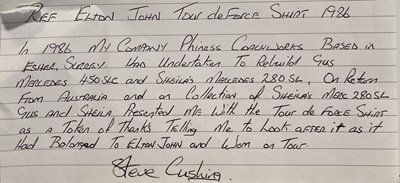 REF ELTON JOHN TOUR de FORCE SHIRT 1986
In 1986 MY COMPANY PHINESS COACHWORKS BASED IN
ESHER, SURREY HAD UNDERTAKEN TO REBUILD GUS
MERCEDES 450SLC and SHEILA'S MERCEDES 280SL. ON RETURN
FROM AUSTRALIA and on COLLECTION OF SHEILA'S MERC 280SL
GUS and SHEILA PRESENTED ME WITH THE TOUR de FORCE SHIRT
as A TOKEN of THANKS TELLING ME TO LOOK AFTER it as it
HAD BELONGED TO ELTON JOHN and WORN on TOUR
Steve Cushing.